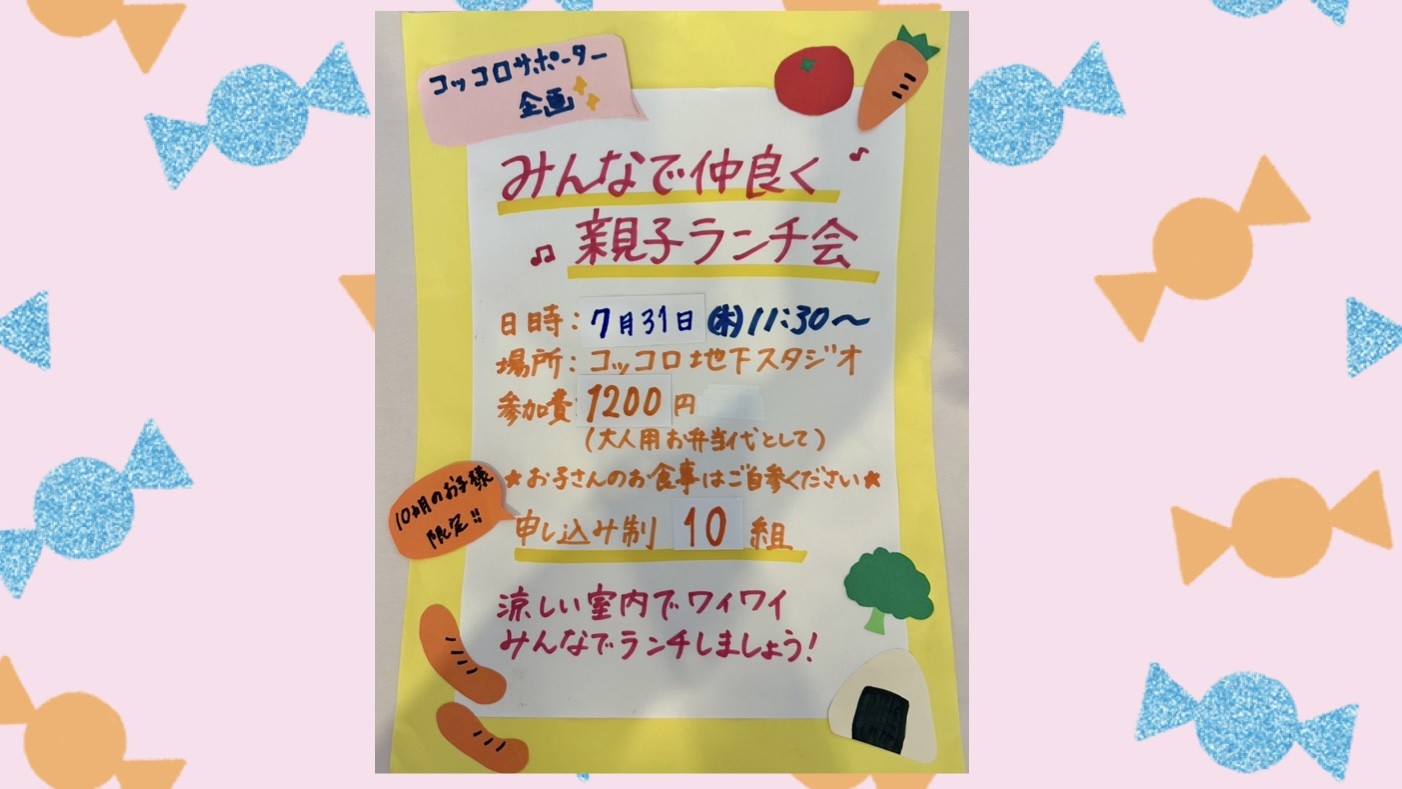 コッコロサポーター
企画
みんなで仲良く
親子ランチ会
日時:7月31日(木)11:30〜
場所:コッコロ地下スタジオ
参加費:1200円
(大人用お弁当代として)
★お子さんのお食事はご自参ください★
10ヵ月のお子様
限定!!
申し込み制 10 組
涼しい室内でワイワイ
みんなでランチしましょう!